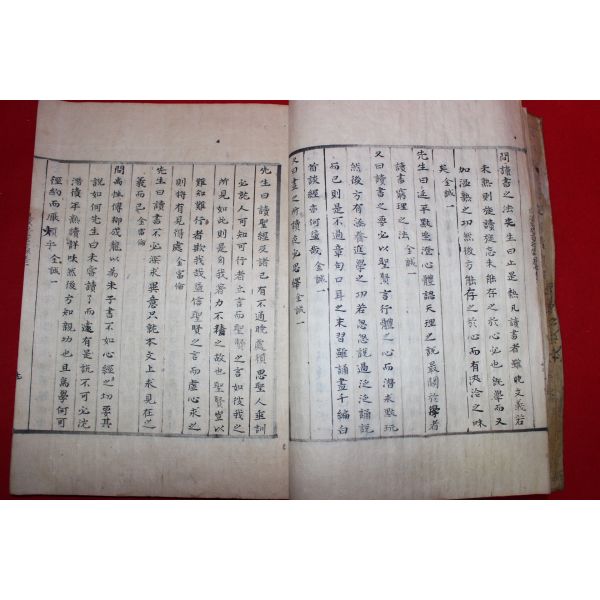 問讀書之法先生曰止是熟凡讀書者雖曉文義若
未熟則旋讀旋忘未能存之於心必也旣學而又
加溫熟之功然後方能存之於心而有浹洽之味
矣金誠一
先生曰延平默坐澄心體認天理之說最關於學者
讀書窮理之法金誠一
又曰讀書之要必以聖賢言行體之心而潛求默玩
然後方有涵養進學之功若悤悤說過泛泛誦說
而已則是不過章句口耳之末習雖誦盡千編白
首談經亦何益哉金誠一
又曰晝之所讀夜必思繹金誠一
先生曰讀聖經反諸己有不通曉處須思聖人垂訓
必就人可知可行者立言而聖賢之言如彼我之
所見如此則是自我努力不精之故也聖賢豈以
難知難行者欺我哉益信聖賢之言而虛心求之
則將有見得處金富倫
先生曰讀書不必深求異意只就本文上求見在之
義而已金富倫
問高峯傳柳成龍以爲朱子書不如心經之切要其
說如何先生曰未嘗讀了而遽有是說不可必沈
潛積年熟讀詳味然後方知親功也且爲學何可
徑約而厭煩乎金誠一